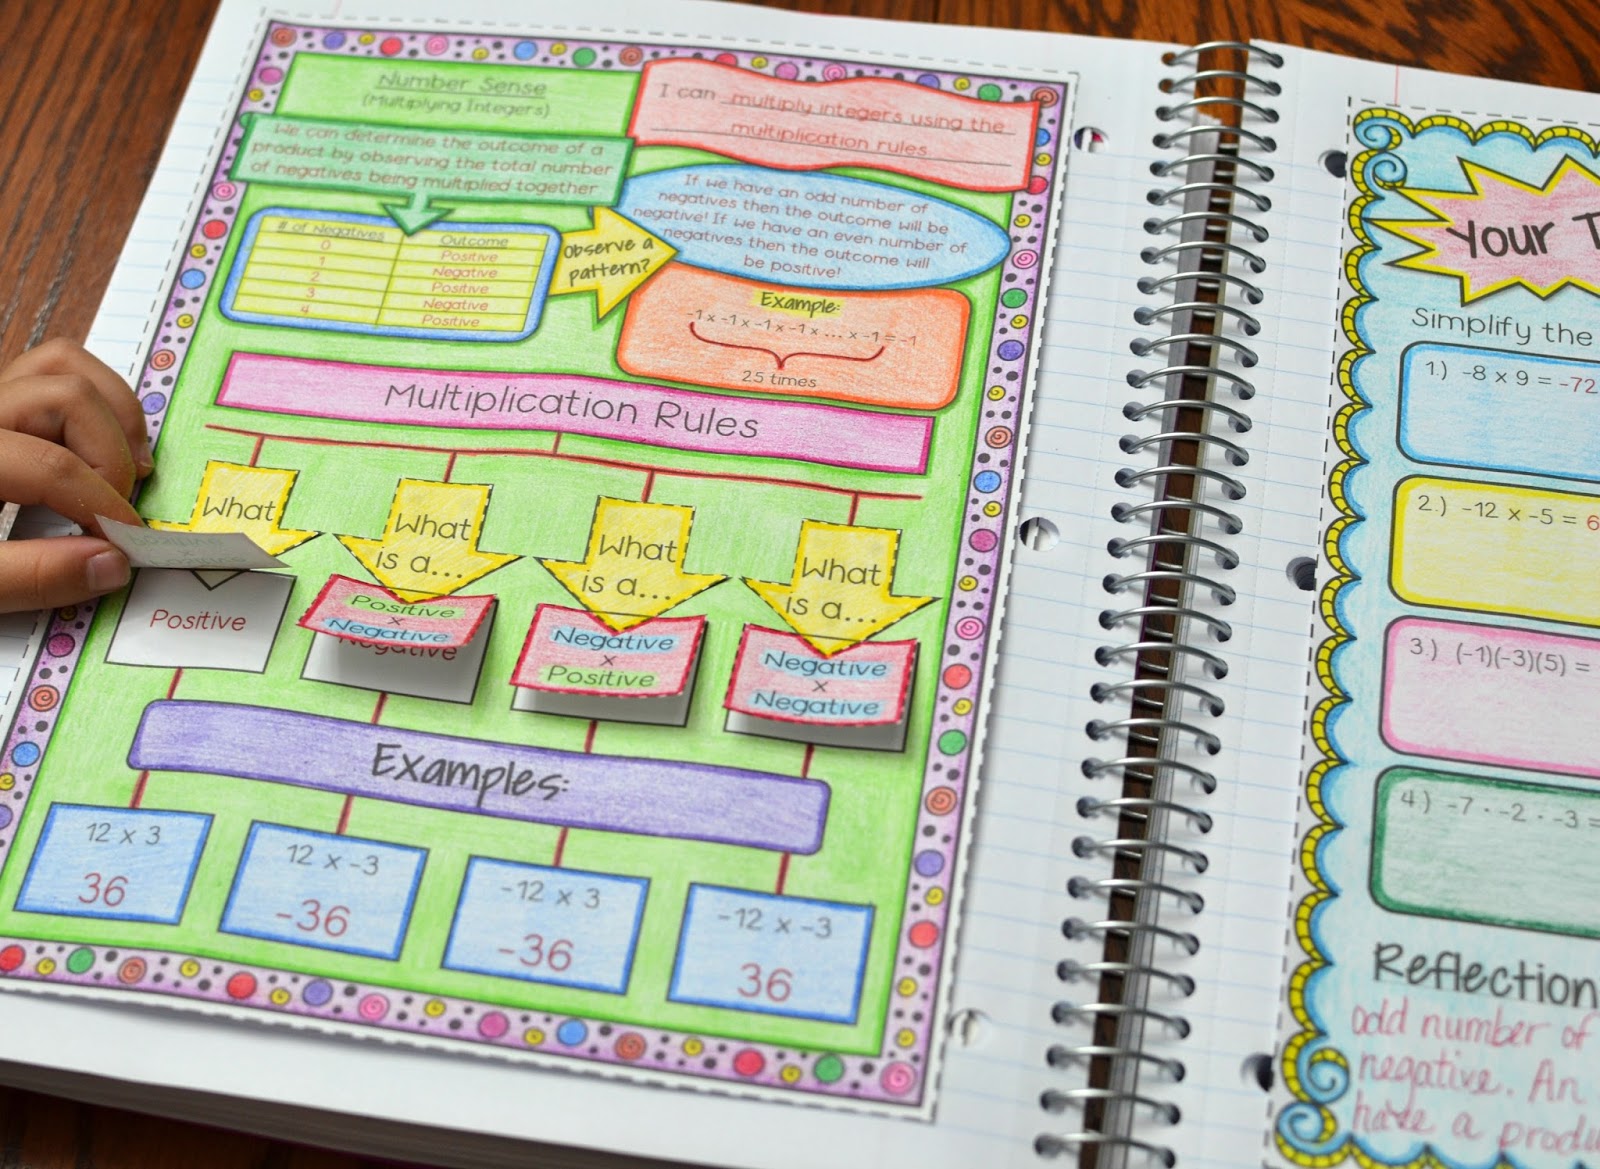 Number Sense
(Multiplying Integers)
I can multiply integers using the
multiplication rules.
We can determine the outcome of a
product by observing the total number
of negatives being multiplied together
# of Negatives Outcome
0 Positive
1 Negative
2 Positive
3 Negative
4 Positive
Observe a
pattern?
If we have an odd number of
negatives then the outcome will be
negative! If we have an even number of
negatives then the outcome will
be positive!
Example:
-1 x -1 x -1 x -1 x ... x -1 = -1
25 times
Multiplication Rules
What
Positive
What
is a...
Positive
x
Negative
Negative
What
is a...
Negative
x
Positive
What
is a...
Negative
x
Negative
Examples:
12 x 3
36
12 x -3
-36
-12 x 3
-36
-12 x -3
36
Your T
Simplify the
1.) -8 x 9 = -72
2.) -12 x -5 = 6
3.) (-1)(-3)(5) =
4.) -7 · -2 · -3 =
Reflection
odd number of
negative. An
have a produ